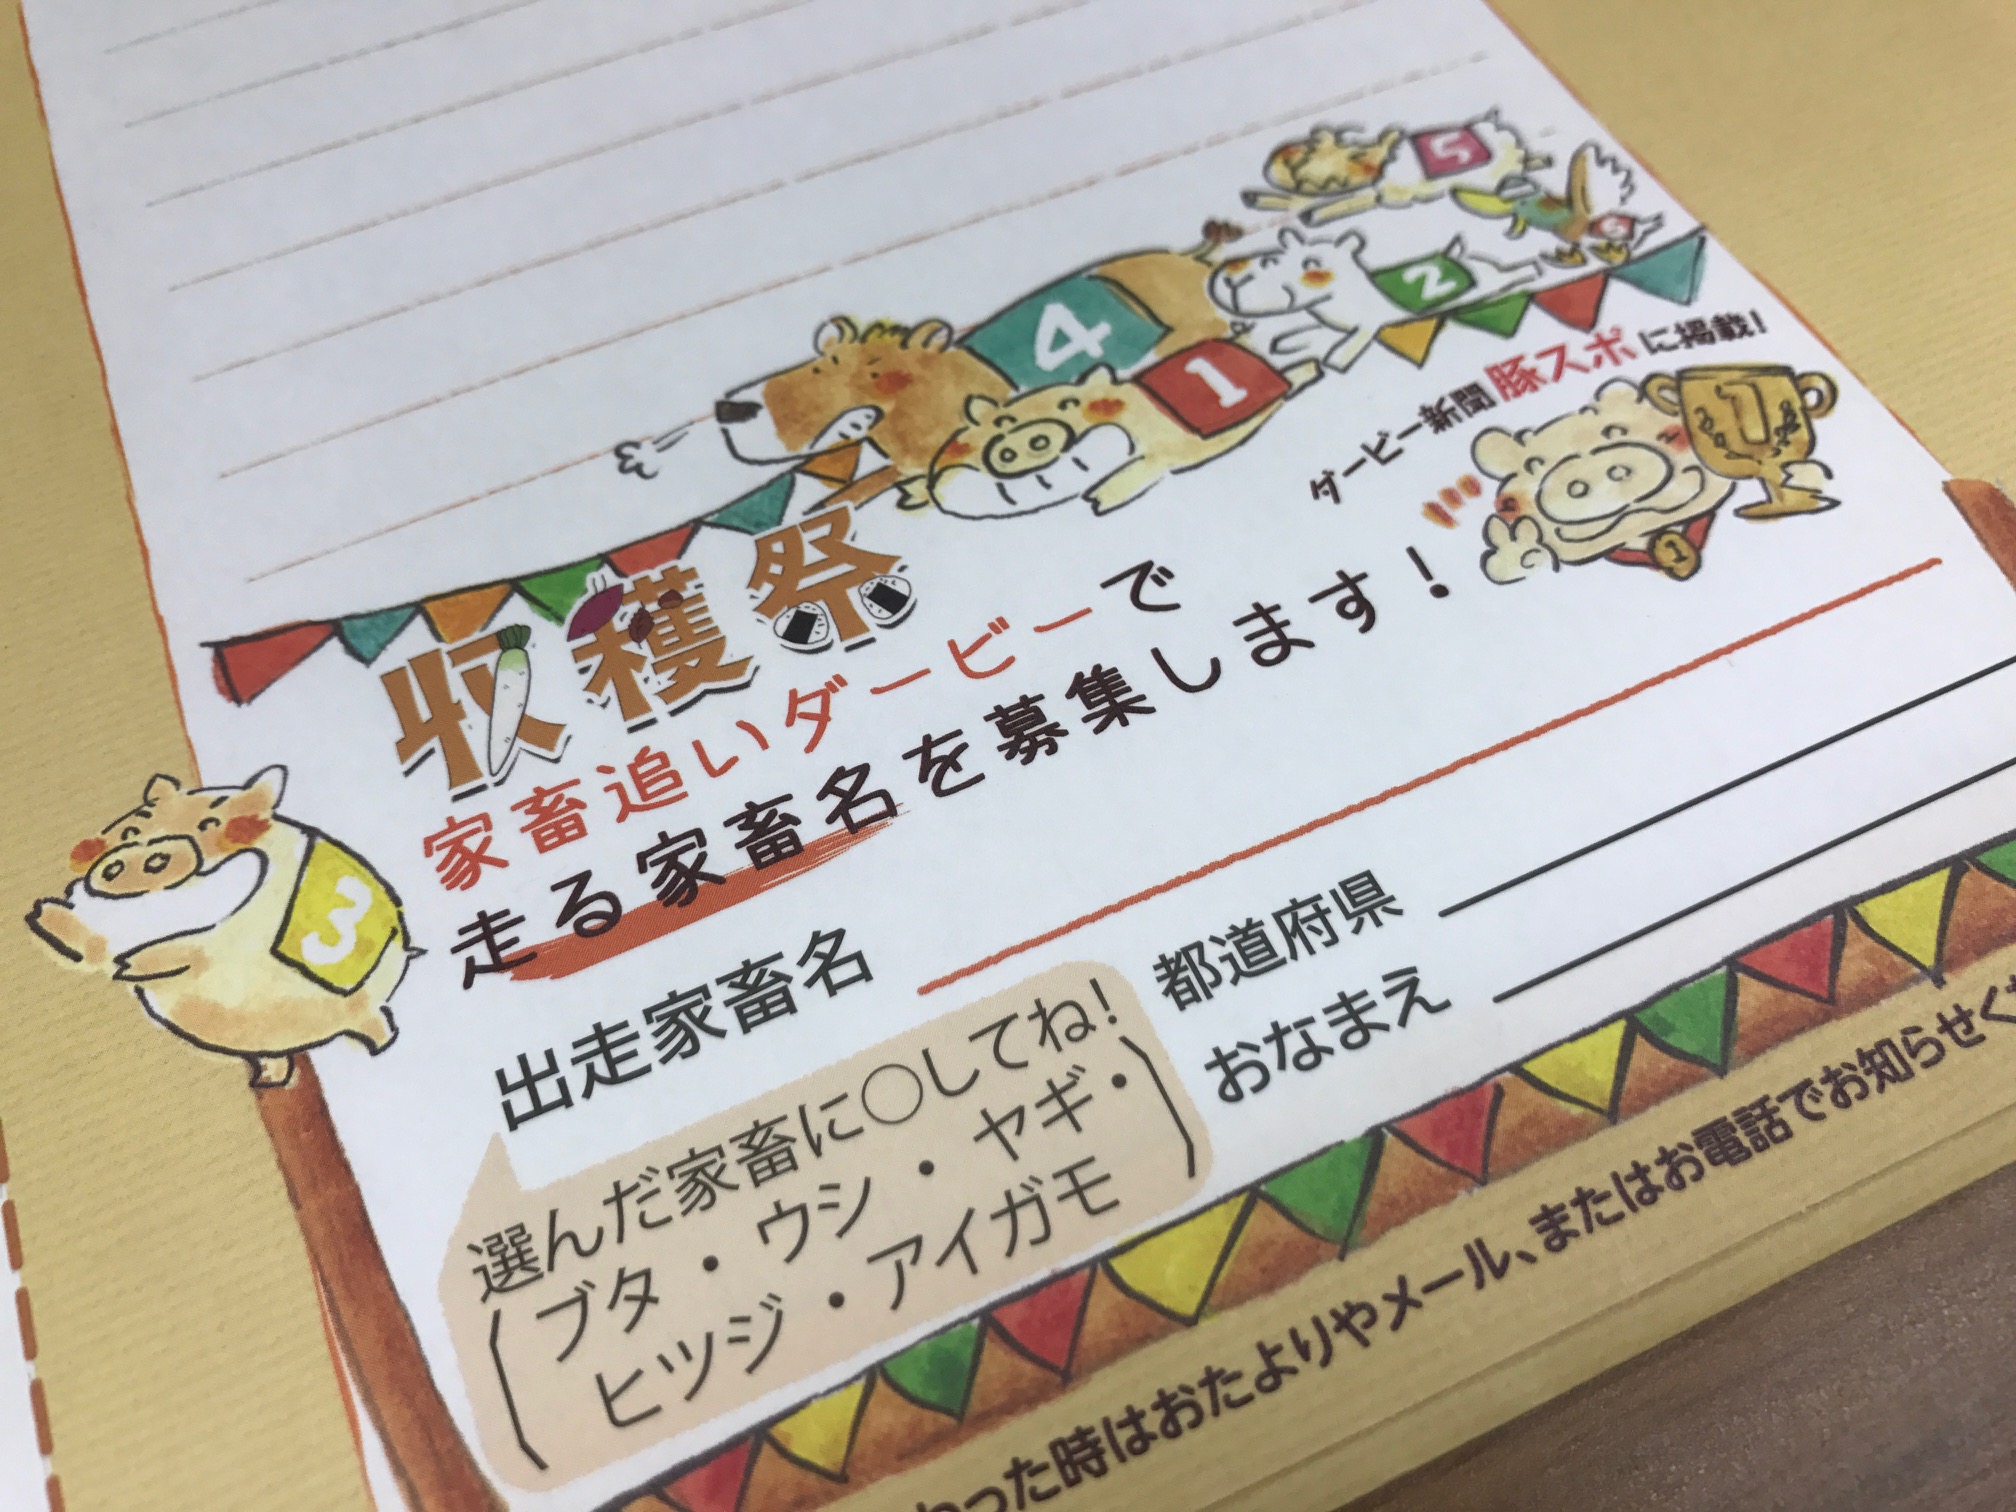 5
6
2
4
1
ダービー新聞 豚スポ に掲載！
1
1
収穫祭
家畜追いダービーで
走る家畜名を募集します！
3
出走家畜名
選んだ家畜に○してね！
(ブタ・ウシ・ヤギ・
ヒツジ・アイガモ)
都道府県
おなまえ
わった時はおたよりやメール、またはお電話でお知らせくだ